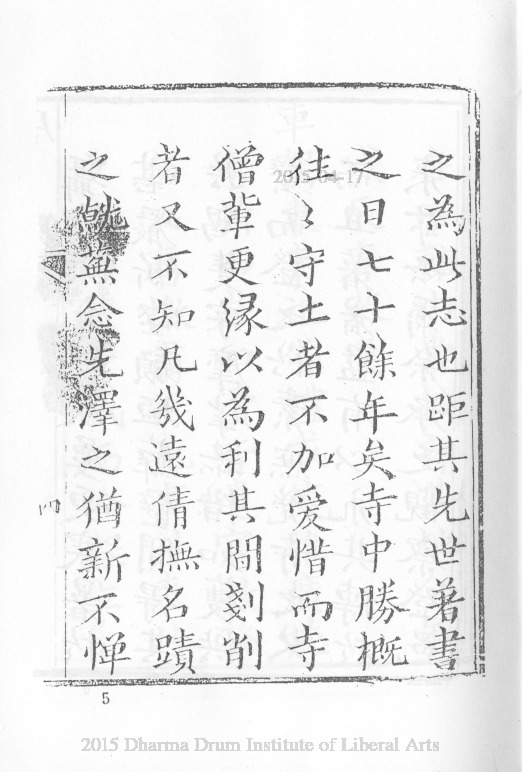 之為此志也距其先世著書
之日七十餘年矣寺中勝概
往〻守土者不加愛惜而寺
僧輩更緣以為利其間剗削
者又不知凡幾遠倩撫名蹟
之就蕪念先澤之猶新不憚
四
5
2015-04-17
2015 Dharma Drum Institute of Liberal Arts